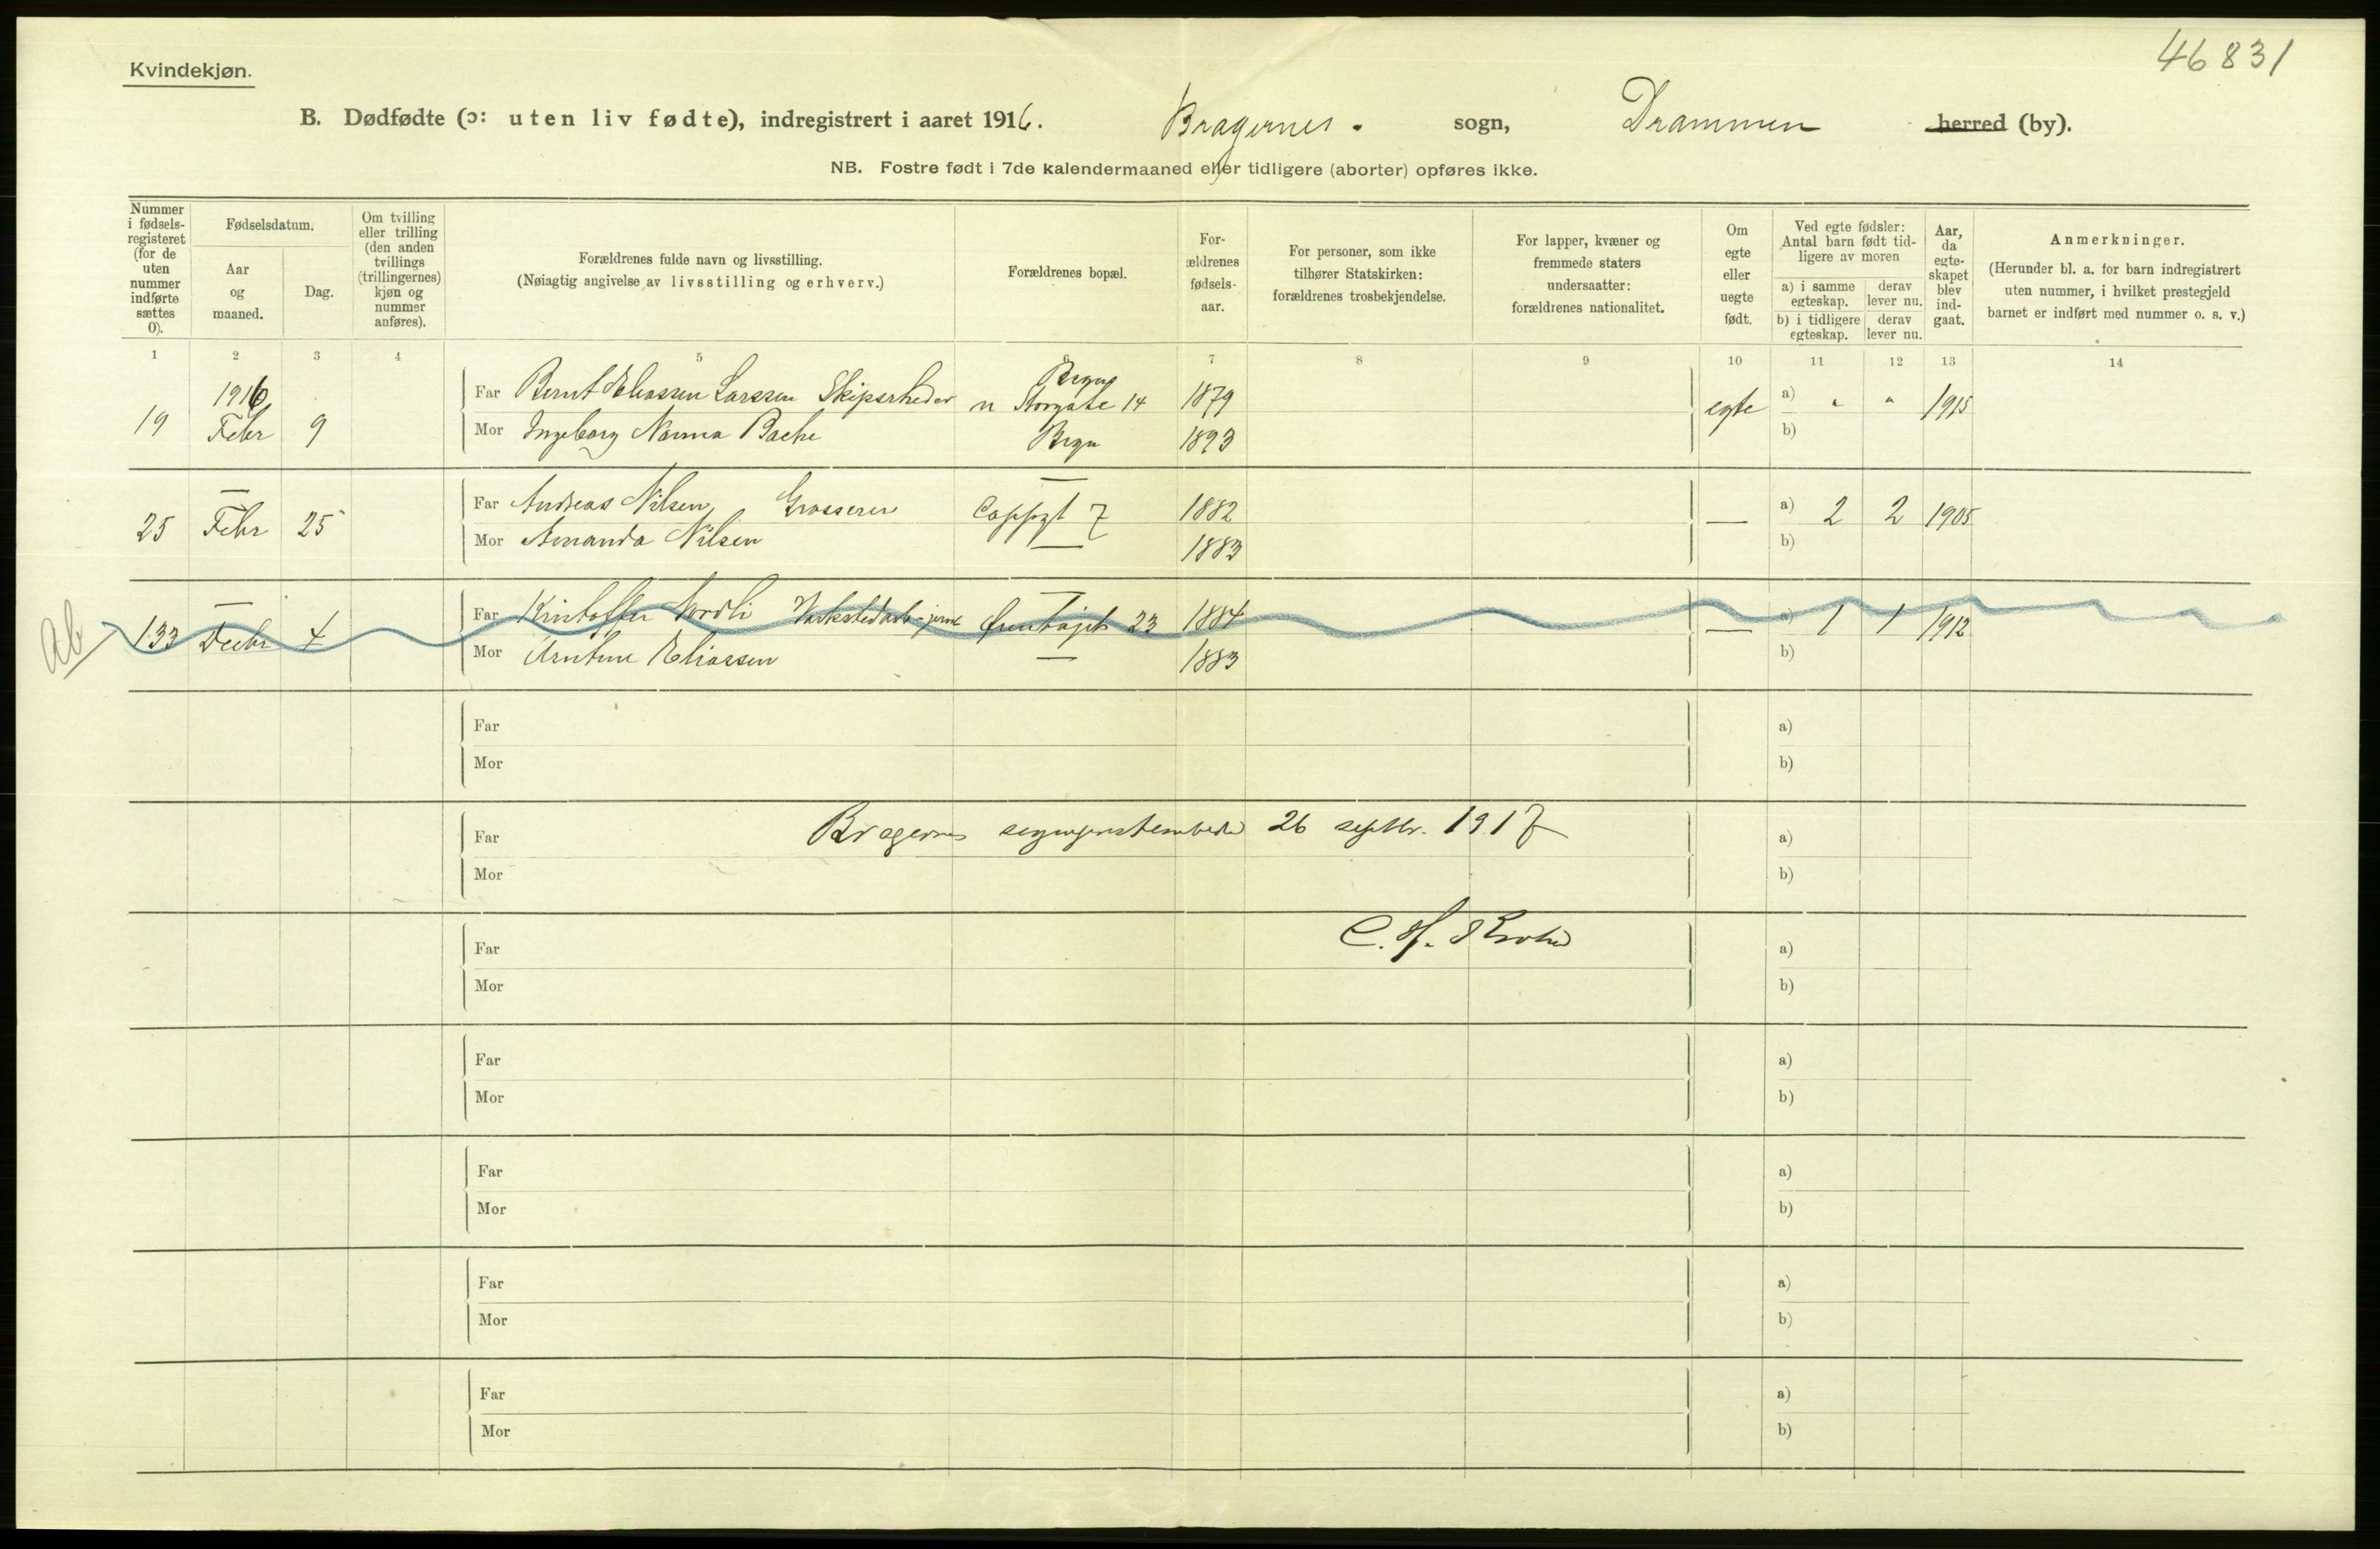 46831
Kvindekjøn.
B. Dødfødte (ɔ: uten liv fødte), indregistrert i aaret 1916. Bragernes. sogn, Drammen herred (by).
NB. Fostre født i 7de kalendermaaned eller tidligere (aborter) opføres ikke.
Nummer i fødsels-registeret (for de uten nummer indførte sættes 0).
Fødselsdatum.
Aar og maaned.
Dag.
Om tvilling eller trilling (den anden tvillings (trillingernes) kjøn og nummer anføres).
Forældrenes fulde navn og livsstilling.
(Nøiagtig angivelse av livsstilling og erhverv.)
Forældrenes bopæl.
For-ældrenes fødsels-aar.
For personer, som ikke tilhører Statskirken: forældrenes trosbekjendelse.
For lapper, kvæner og fremmede staters undersaatter: forældrenes nationalitet.
Om egte eller uegte født.
Ved egte fødsler: Antal barn født tid-ligere av moren
a) i samme egteskap.
derav lever nu.
b) i tidligere egteskap.
derav lever nu.
Aar, da egte-skapet blev ind-gaat.
Anmerkninger.
(Herunder bl. a. for barn indregistrert uten nummer, i hvilket prestegjeld barnet er indført med nummer o. s. v.)
1 2 3 4 5 6 7 8 9 10 11 12 13 14
19 1916 Febr 9 Far Bernt Eliassen Larssen Skipsrheder n Storgate 14 1879 egte a) " " 1915
Mor Ingeborg Norma Bache Brgn 1893 b)
25 — Febr 25 Far Andreas Nilsen, Grosserer Cappgt 7 1882 — a) 2 2 1905
Mor Amanda Nilsen — 1883 b)
Ab 133 — Decbr 4 Far Kristoffer Nordli 23 1884 — a) 1 1 1912
Mor Arntine Eliassen — 1883 b)
Far a)
Mor b)
Far Bragernes 26 septbr. 1917 a)
Mor b)
Far C. H. a)
Mor b)
Far a)
Mor b)
Far a)
Mor b)
Far a)
Mor b)
Far a)
Mor b)